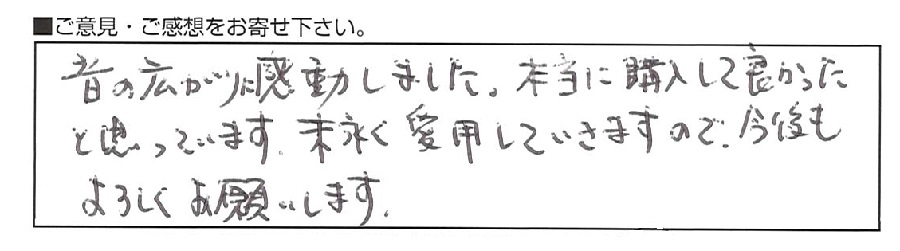 ■ご意見・ご感想をお寄せ下さい。
音の広がりに感動しました。本当に購入して良かった
と思っています。末永く愛用していきますので、今後も
よろしくお願いします。